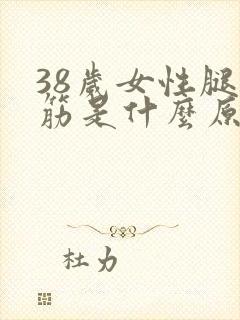 38歲女性腿
筋是什麼原
杜力